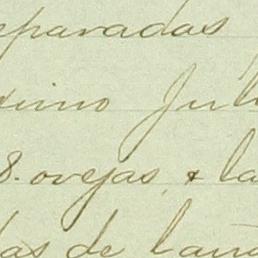 eparadas
ximo Juli
8. ovejas, & la
das de lana